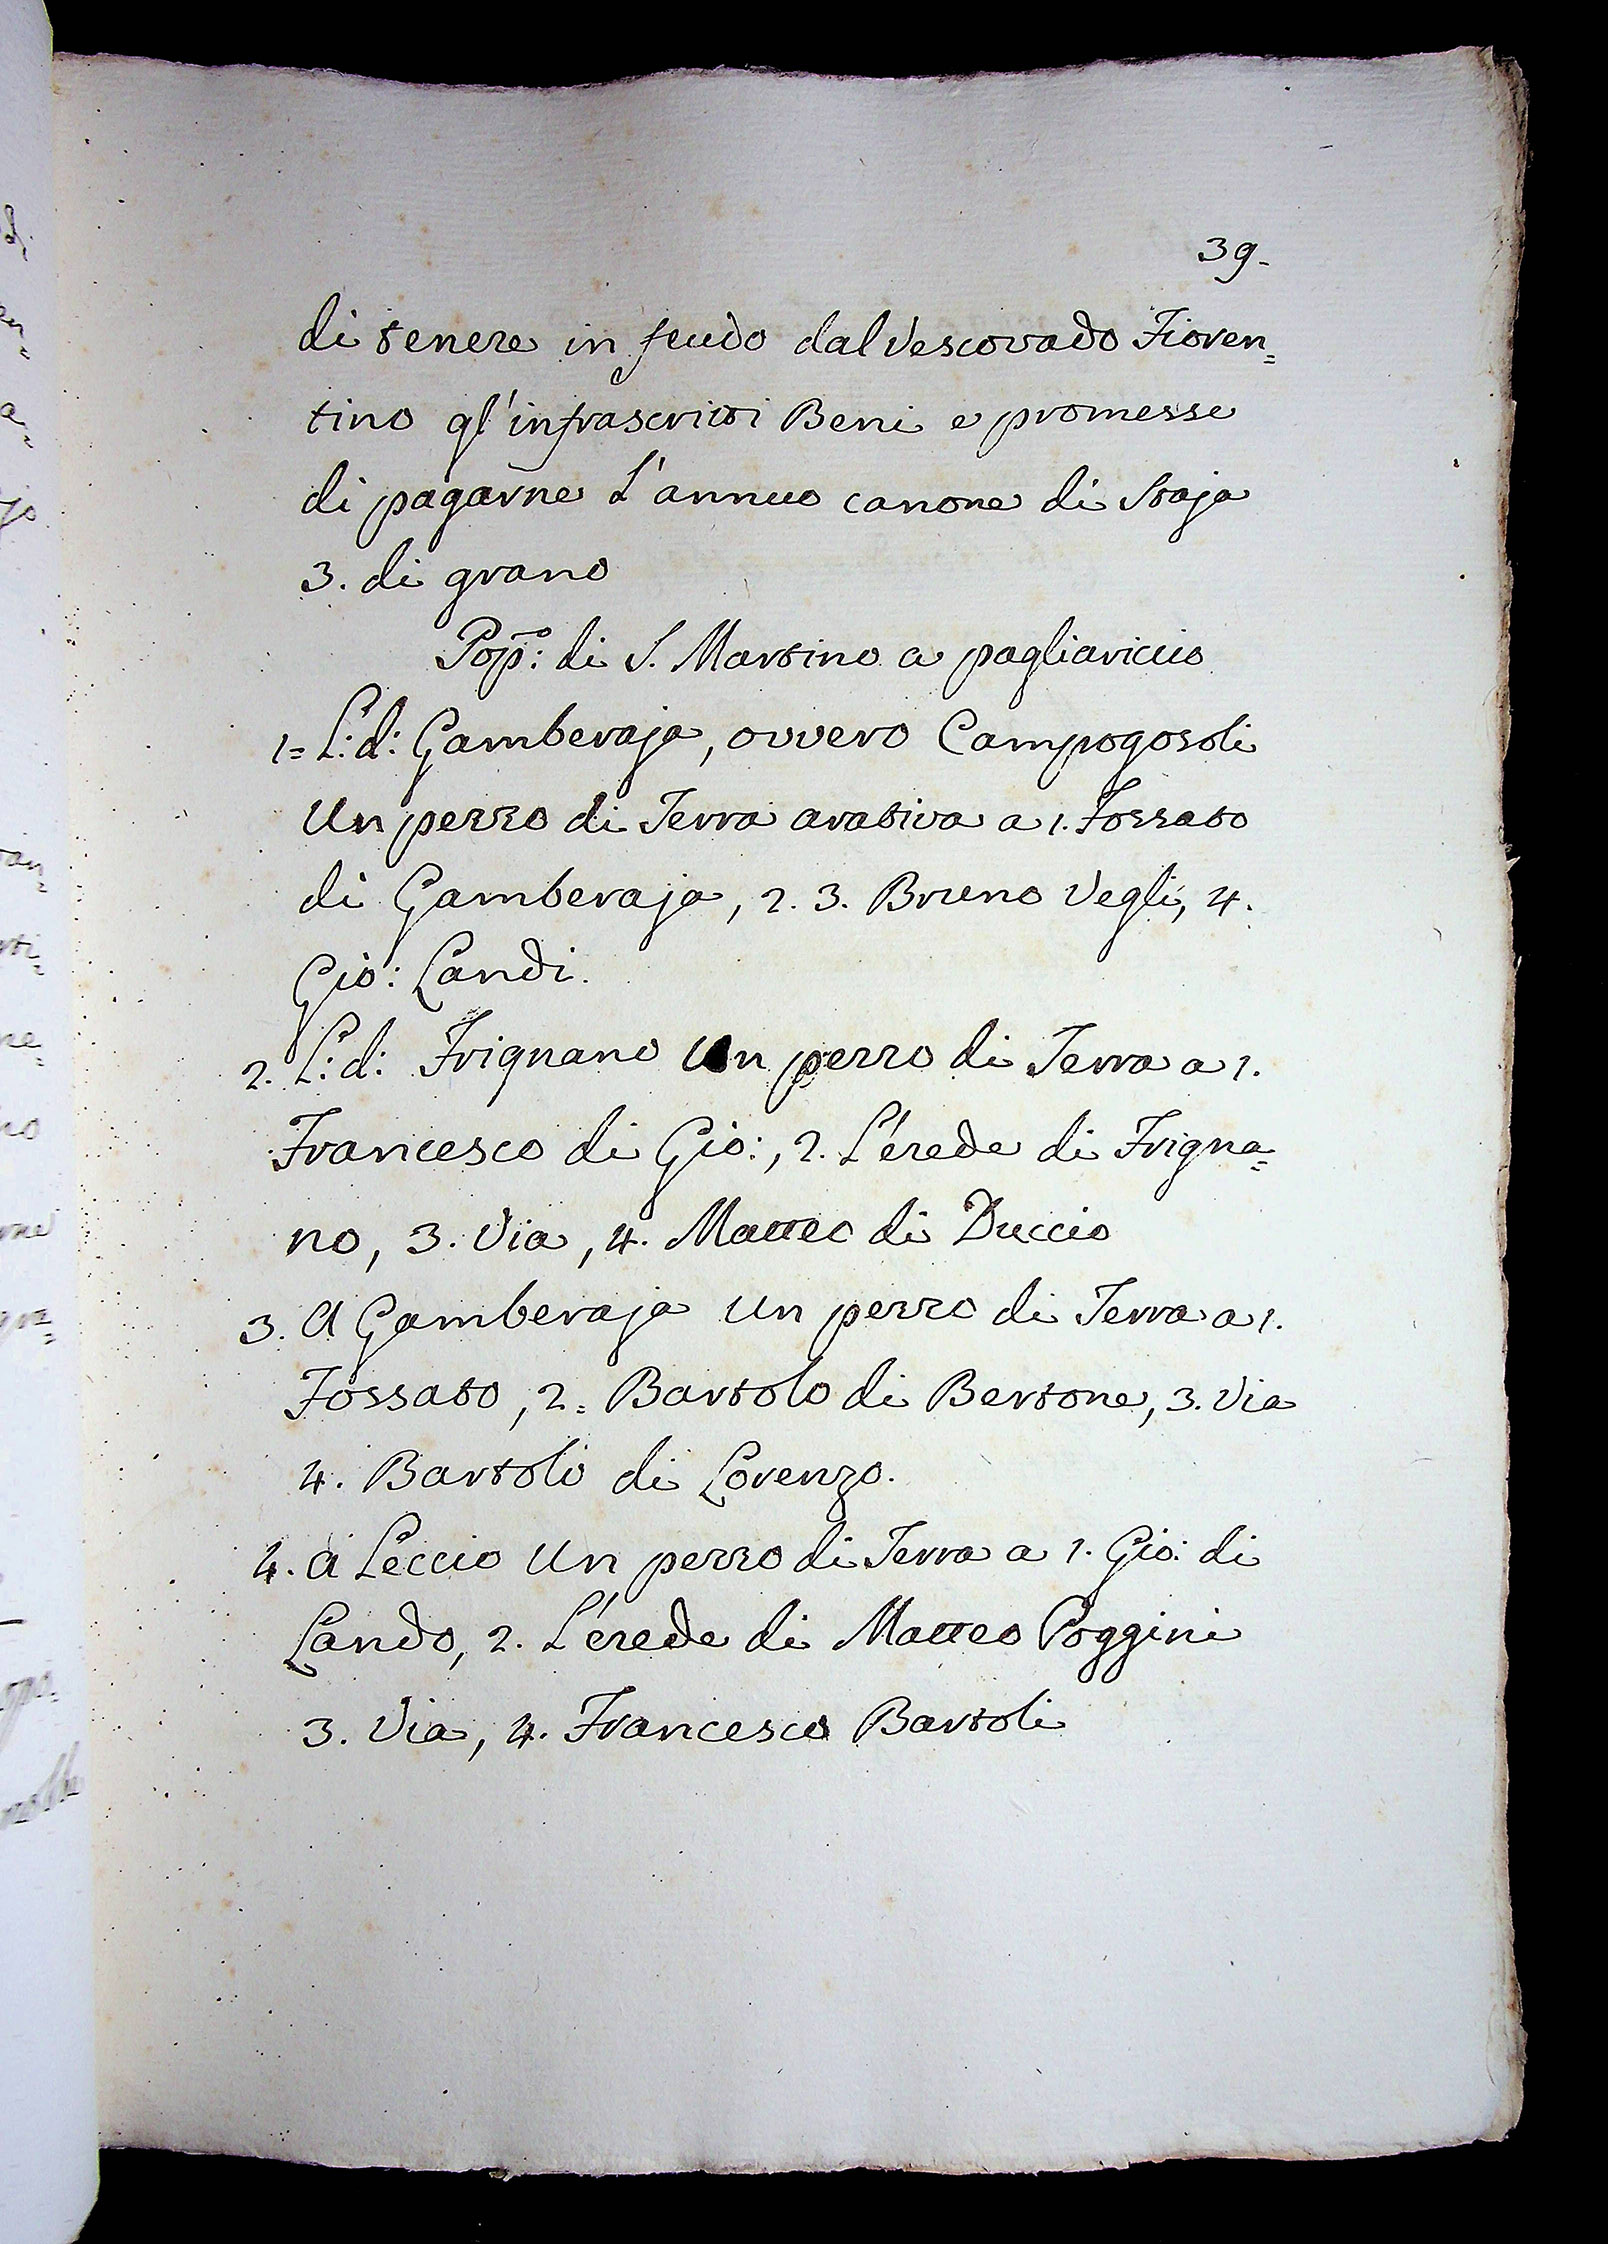 39.
di tenere in feudo dal Vescovado Fioren=
tino gl'infrascritti Beni e promesse
di pagarne L'annuo canone di Staja
3. di grano
Pop.º: di S. Martino a pagliariccio
1= L: d: Gamberaja, ovvero Campogosoli
Un pezzo di Terra arativa a 1. Fossato
di Gamberaja, 2. 3. Bruno Vegli, 4.
Gio: Landi.
2. L: d: Frignano Un pezzo di Terra a 1.
Francesco di Gio:, 2. L'erede di Frigna=
no, 3. Via, 4. Matteo di Duccio
3. A Gamberaja Un pezzo di Terra a 1.
Fossato, 2= Bartolo di Bertone, 3. Via
4. Bartolo di Lorenzo.
4. A Leccio Un pezzo di Terra a 1. Gio: di
Lando, 2. L'erede di Matteo Poggini
3. Via, 4. Francesco Bartoli